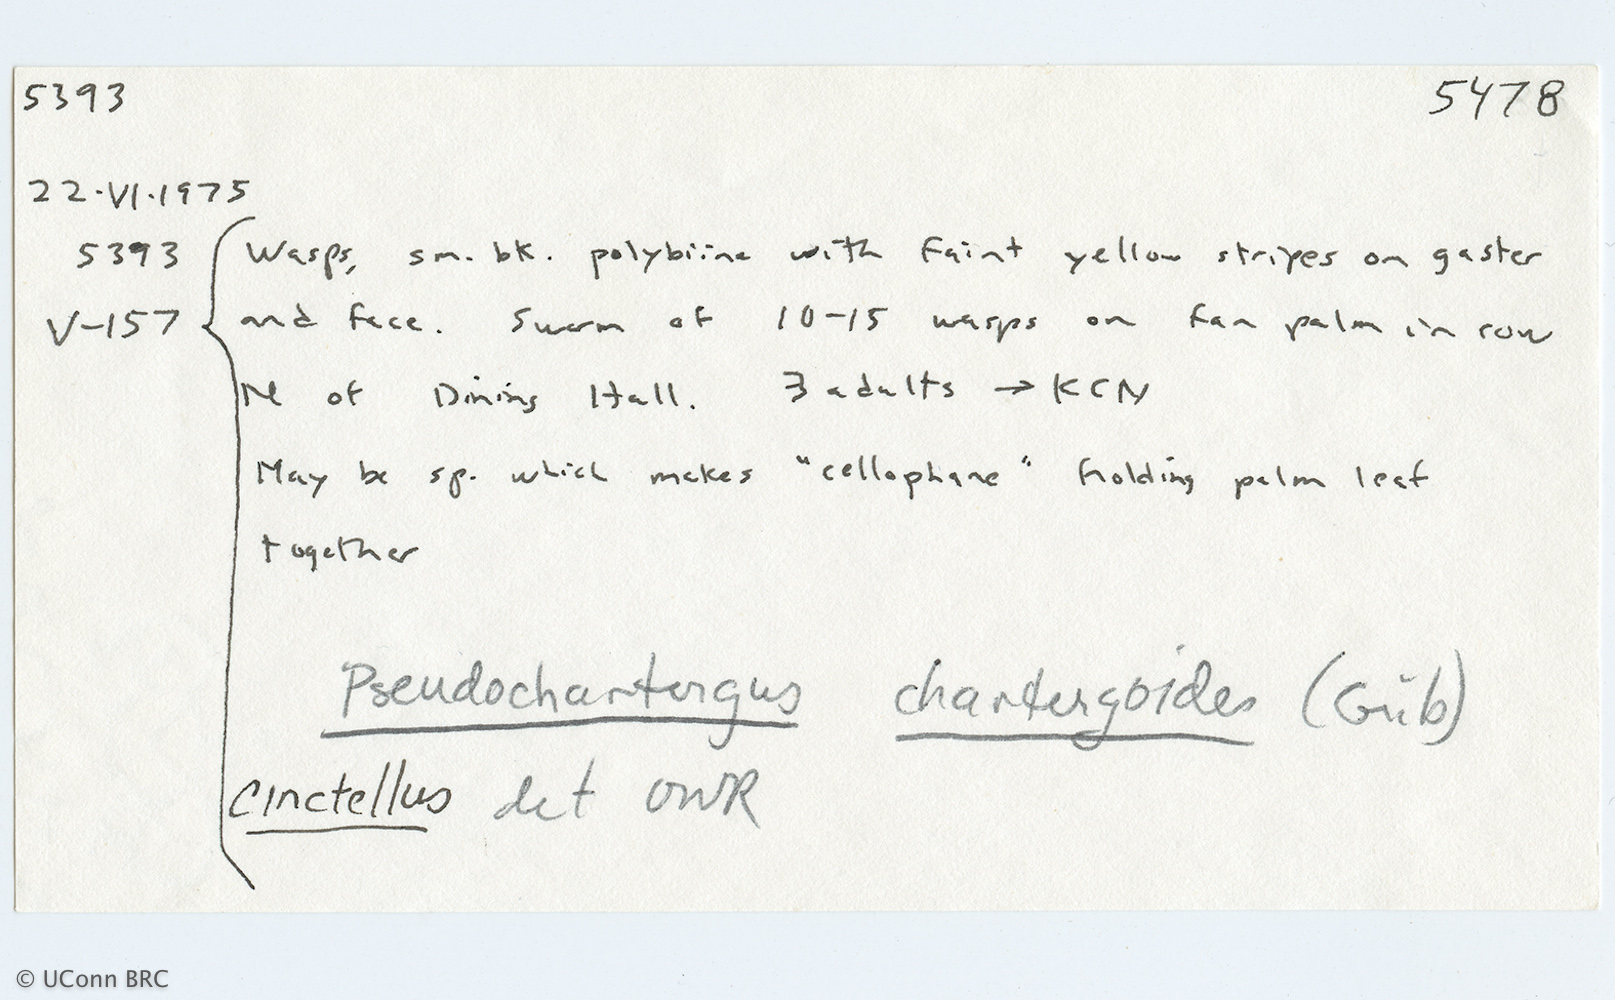 5393 5478
22·VI·1975
5393 Wasps, sm. bk. polybiine with faint yellow stripes on gaster
V-157 and face. Swarm of 10-15 wasps on fan palm in row
N of Dining Hall. 3 adults → KCN
May be sp. which makes "cellophane" holding palm leaf
together
Pseudochartergus chartergoides (Grib)
cinctellus det OWR
© UConn BRC